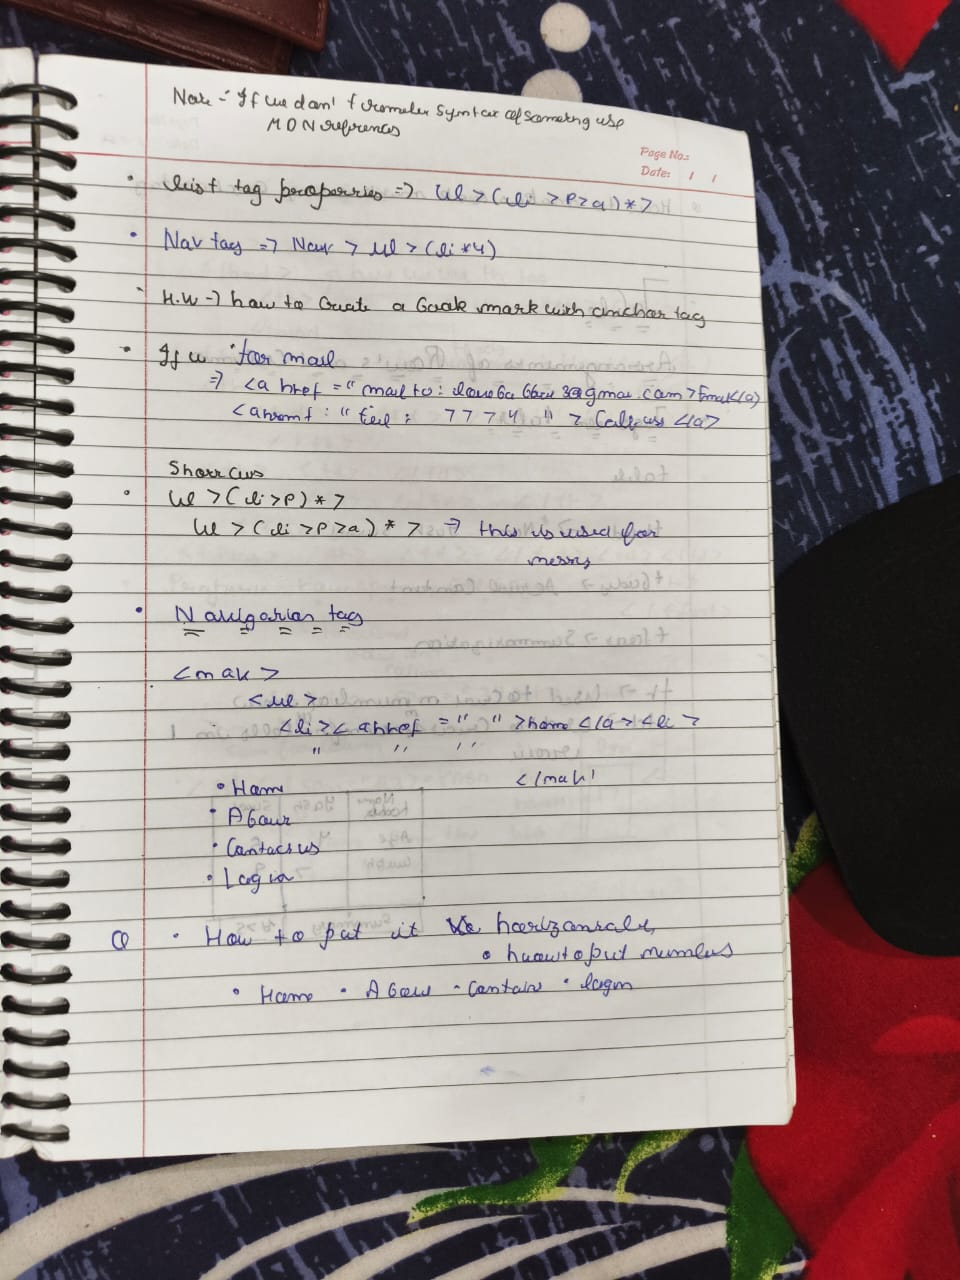 Note - If we don't remember Syntax of something use
MDN references
Page No.:
Date: / /
• list tag properties => ul > (li > p > a) * 7
• Nav tag => Nav > ul > (li * 4)
- H.W -> how to Create a Book mark with anchor tag
• If u for mail
=> <a href = " mail to: gmai .com > Email </a>
" tel : 7774 " > Call us </a>
Shortcuts
• ul > (li > p) * 7
ul > (li > p > a) * 7 => this is used for
• Navigation tag
<nav>
<ul>
<li> < a href = " " > home </a> <li>
" " "
</nav
• Home
• About
• Contact us
• Login
Q • How to put it horizontally
• how to put numbers
• Home • About • Contact • login